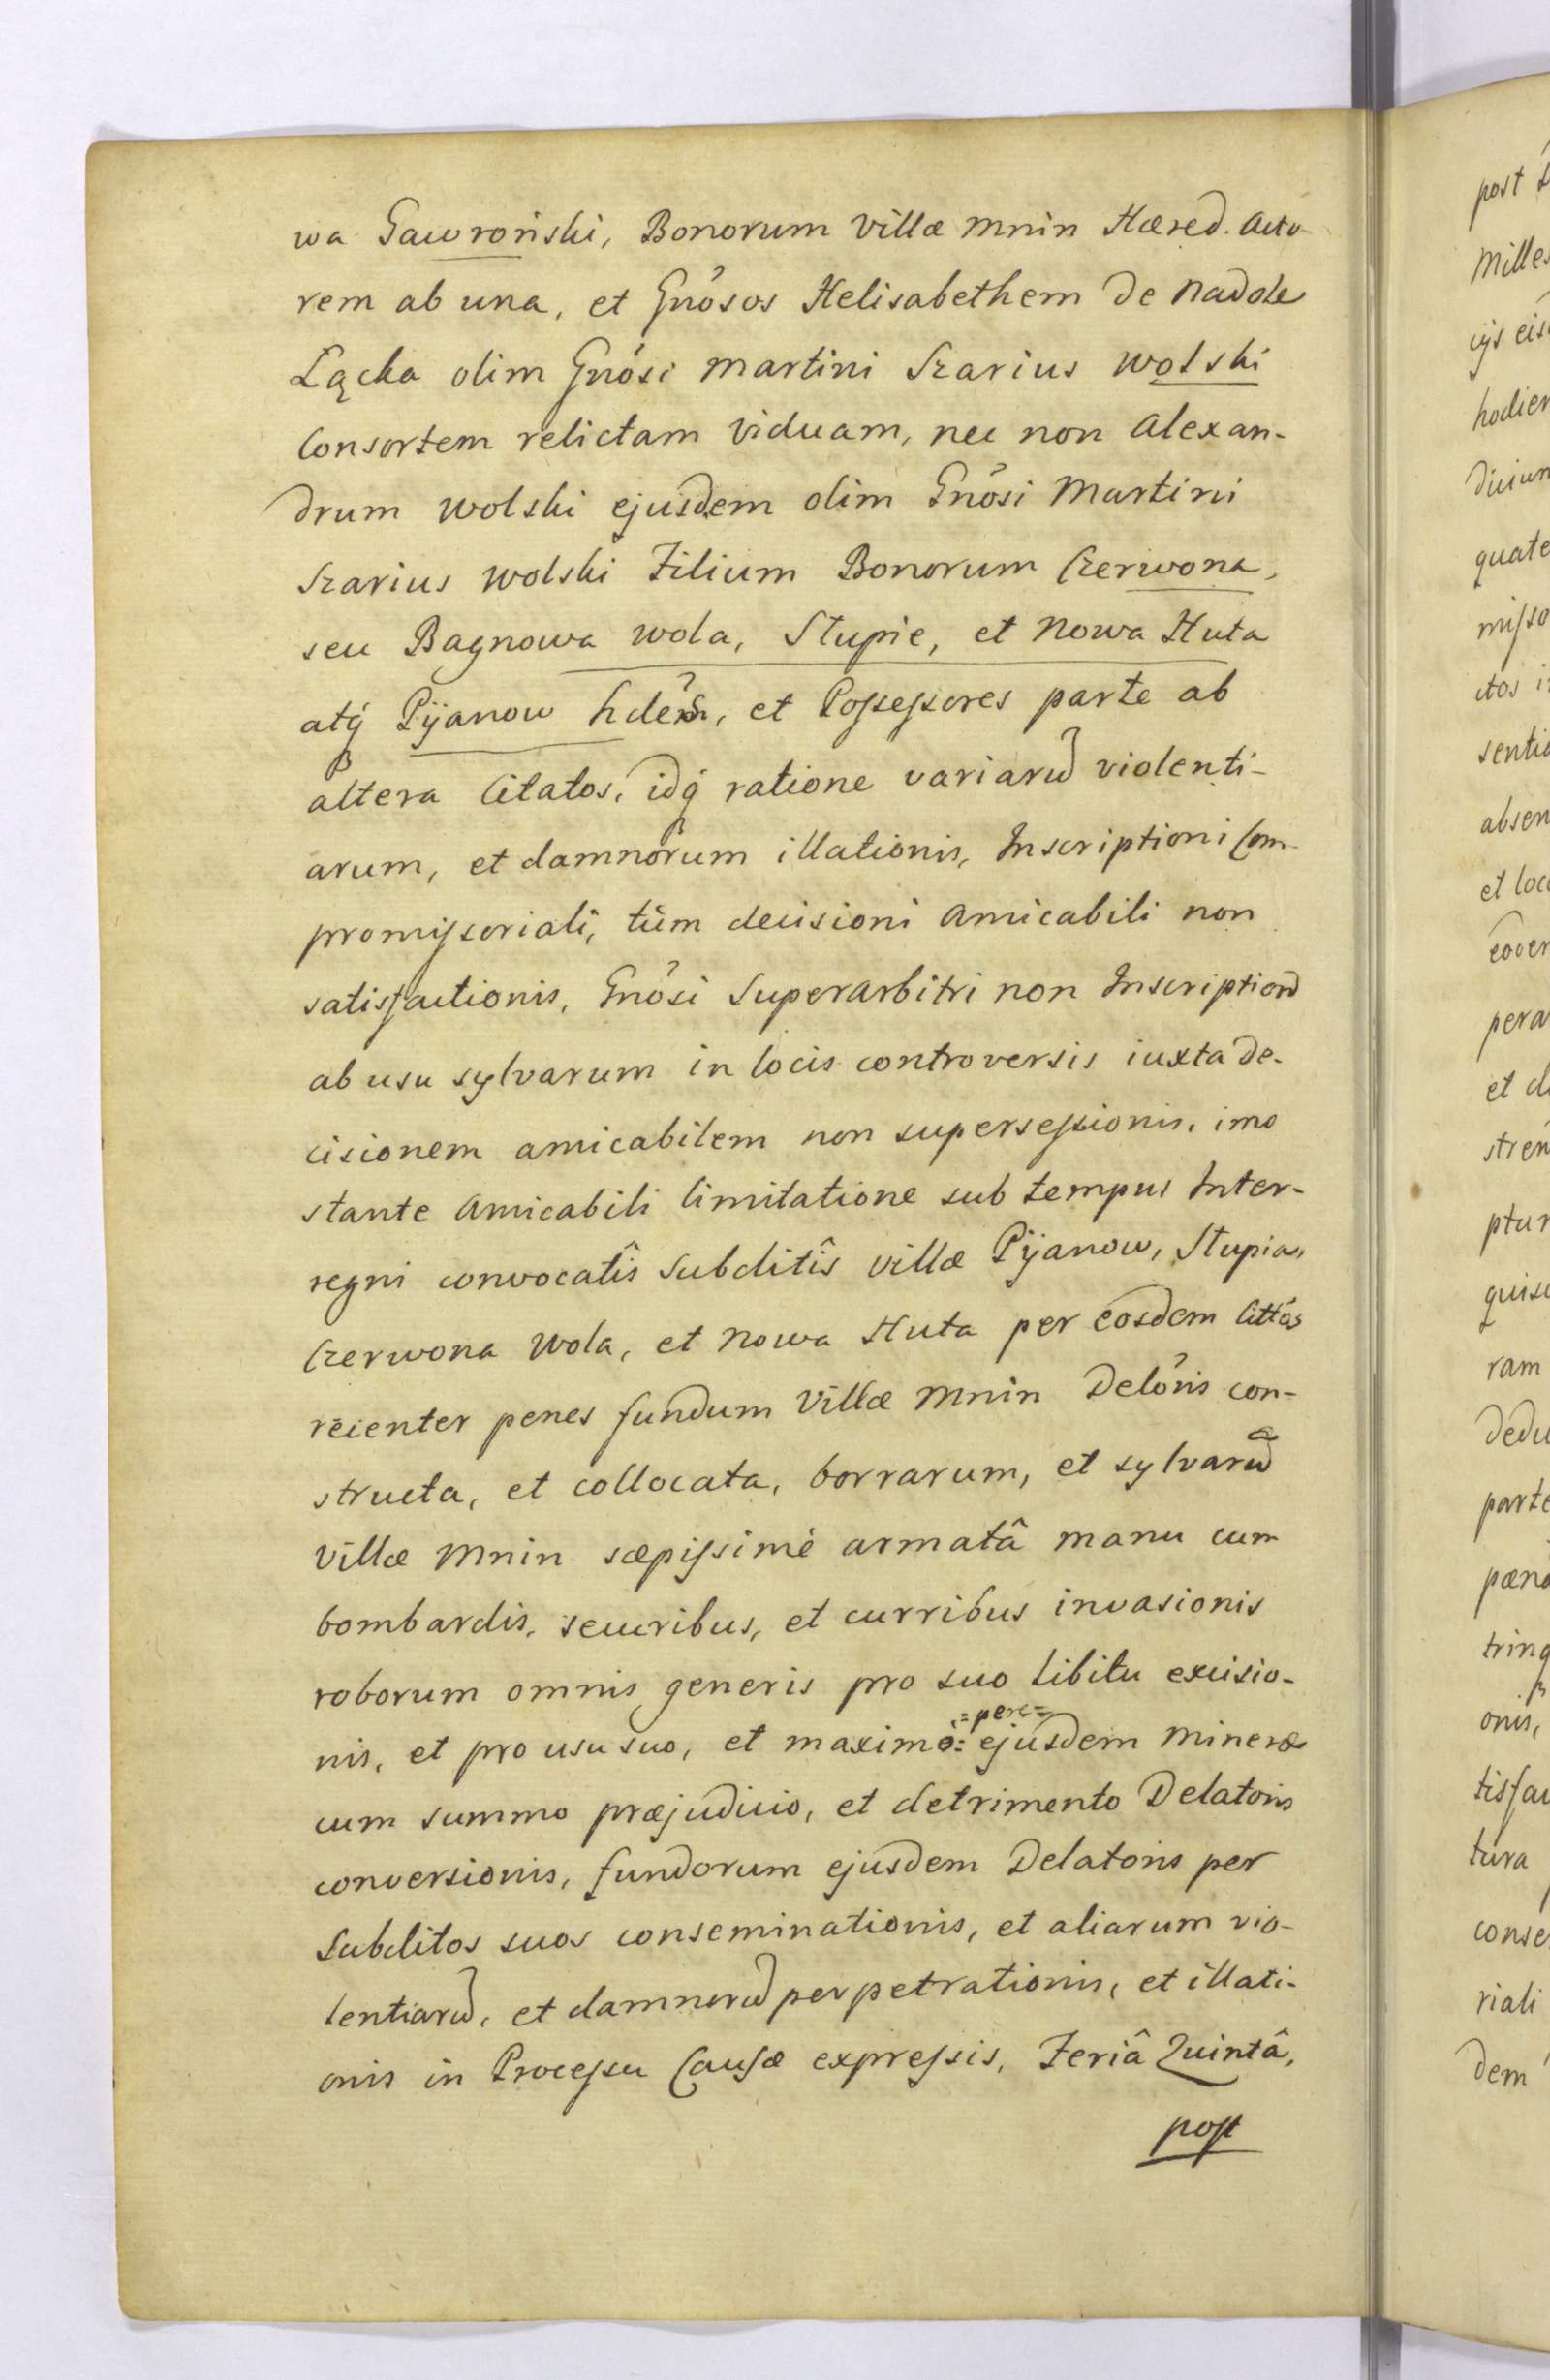 wa Gawroński, Bonorum Villæ Mnin Hæred. Acto-
rem ab una, et Gnõsos Helisabethem de Nadole
Łącka olim Gnõsi Martini Szarius Wolski
Consortem relictam Viduam, nec non Alexan-
drum Wolski ejusdem olim Gnõsi Martini
Szarius Wolski Filium Bonorum Czerwona,
seu Bagnowa Wola, Stupie, et Nowa Huta
atq́ Pijanow hdẽs, et Possessores parte ab
altera Citatos, idq́ ratione variarũ violenti-
arum, et damnorum illationis, Inscriptioni Com-
promissoriali, tùm decisioni Amicabili non
satisfactionis, Gnõsi Superarbitri non Inscriptionẽ
ab usu sylvarum in locis controversis iuxta de-
cisionem amicabilem non supersessionis, imo
stante Amicabili limitatione sub tempus Inter-
regni convocatîs Subditîs villæ Pijanow, Stupia,
Czerwona Wola, et Nowa Huta per eosdem Cittós
rẽcenter penes fundum Villæ Mnin Delõris con-
structa, et collocata, borrarum, et sylvarũ
Villæ Mnin sæpissimè armatâ manu cum
bombardis, securibus, et curribus invasionis
roborum omnis generis pro suo libitu excisio-
nis, et pro usu suo, et maximo: =pere= ejusdem Mineræ
cum summo præjudicio, et detrimento Delatoris
conversionis, fundorum ejusdem Delatoris per
Subditos suos conseminationis, et aliarum vio-
lentiarũ, et damnorũ perpetrationis, et illati-
onis in Processu Causæ expressis, Feriâ Quintâ,
post
post
Mille
iys eis
hodier
diciun
quate
misso
ctos i
sentia
absen
et loc
eoder
pera
et d
strén
ptur
quisi
ram
Dedu
parte
pæna
tring
onis,
tisfac
tura
conse
riali
dem